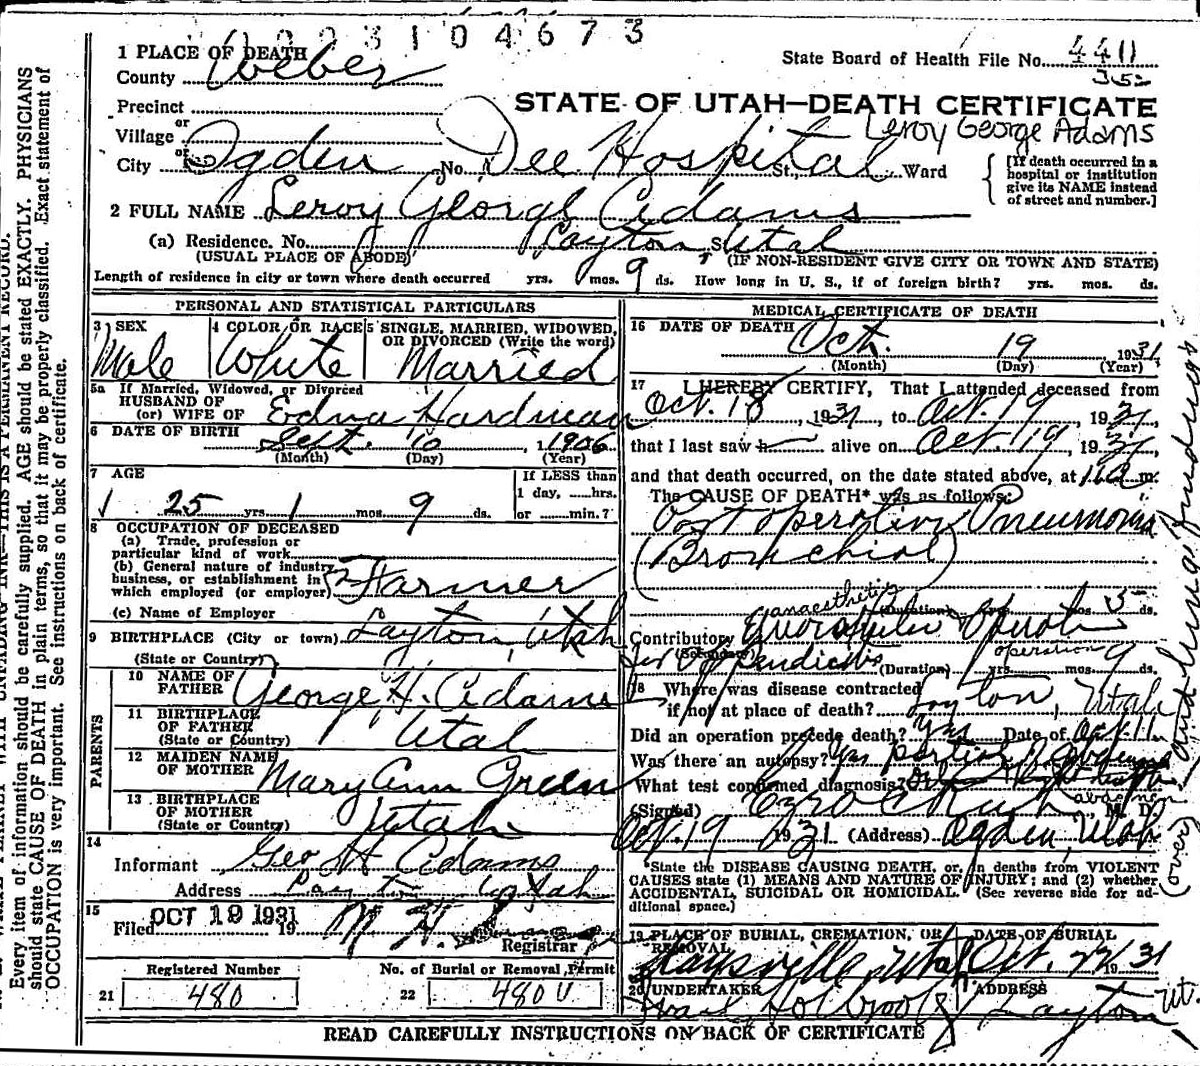 0 0 3 1 0 4 6 7 3
1 PLACE OF DEATH
County Weber
State Board of Health File No. 4411
352
Precinct
or
Village
or
City Ogden No. Dee Hospital St., Ward
STATE OF UTAH—DEATH CERTIFICATE
Leroy George Adams
[If death occurred in a
hospital or institution
give its NAME instead
of street and number.]
2 FULL NAME Leroy George Adams
(a) Residence. No. Layton S Utah
(USUAL PLACE OF ABODE) (IF NON-RESIDENT GIVE CITY OR TOWN AND STATE)
Length of residence in city or town where death occurred yrs. mos. 9 ds. How long in U. S., if of foreign birth? yrs. mos. ds.
PERSONAL AND STATISTICAL PARTICULARS
3 SEX
Male
4 COLOR OR RACE
White
5 SINGLE, MARRIED, WIDOWED,
OR DIVORCED (Write the word)
Married
5a If Married, Widowed, or Divorced
HUSBAND OF
(or) WIFE OF Edna Hardman
6 DATE OF BIRTH Sept. 10, 1906
(Month) (Day) (Year)
7 AGE
25 yrs. 1 mos. 9 ds.
If LESS than
1 day, ......hrs.
or ......min.?
8 OCCUPATION OF DECEASED
(a) Trade, profession or
particular kind of work
(b) General nature of industry,
business, or establishment in
which employed (or employer) Farmer
(c) Name of Employer
9 BIRTHPLACE (City or town) Layton, Utah
(State or Country)
PARENTS
10 NAME OF
FATHER George H. Adams
11 BIRTHPLACE
OF FATHER
(State or Country) Utah
12 MAIDEN NAME
OF MOTHER Mary Ann Green
13 BIRTHPLACE
OF MOTHER
(State or Country) Utah
14
Informant Geo H Adams
Address Layton Utah
15
Filed OCT 19 1931 19 M. H.
Registrar
Registered Number
21 480
No. of Burial or Removal Permit
22 480 U
MEDICAL CERTIFICATE OF DEATH
16 DATE OF DEATH Oct. 19 1931
(Month) (Day) (Year)
17 I HEREBY CERTIFY, That I attended deceased from
Oct. 18, 1931, to Oct. 19 1931
that I last saw h alive on Oct. 19, 1931
and that death occurred, on the date stated above, at m.
The CAUSE OF DEATH* was as follows:
Post operative Pneumonia
(Bronchial)
anaesthetic (Duration) yrs. mos. 5 ds.
Contributory
(Secondary)
for Appendicitis (Duration) yrs. mos. 9 ds.
operation
18 Where was disease contracted
if not at place of death? Layton, Utah
Did an operation precede death? Yes Date of Oct 11
Was there an autopsy? Yes
What test confirmed diagnosis?
(Signed) Ezra C Rich M. D.
Oct. 19 1931 (Address) Ogden, Utah
*State the DISEASE CAUSING DEATH, or, in deaths from VIOLENT
CAUSES state (1) MEANS AND NATURE OF INJURY; and (2) whether
ACCIDENTAL, SUICIDAL OR HOMICIDAL. (See reverse side for ad-
ditional space.)
19 PLACE OF BURIAL, CREMATION, OR
REMOVAL
Kaysville Utah
DATE OF BURIAL
Oct. 22 1931
20 UNDERTAKER
Holbrook
ADDRESS
Layton Ut.
(over)
READ CAREFULLY INSTRUCTIONS ON BACK OF CERTIFICATE
Every item of information should be carefully supplied. AGE should be stated EXACTLY. PHYSICIANS
should state CAUSE OF DEATH in plain terms, so that it may be properly classified. Exact statement of
OCCUPATION is very important. See instructions on back of certificate.